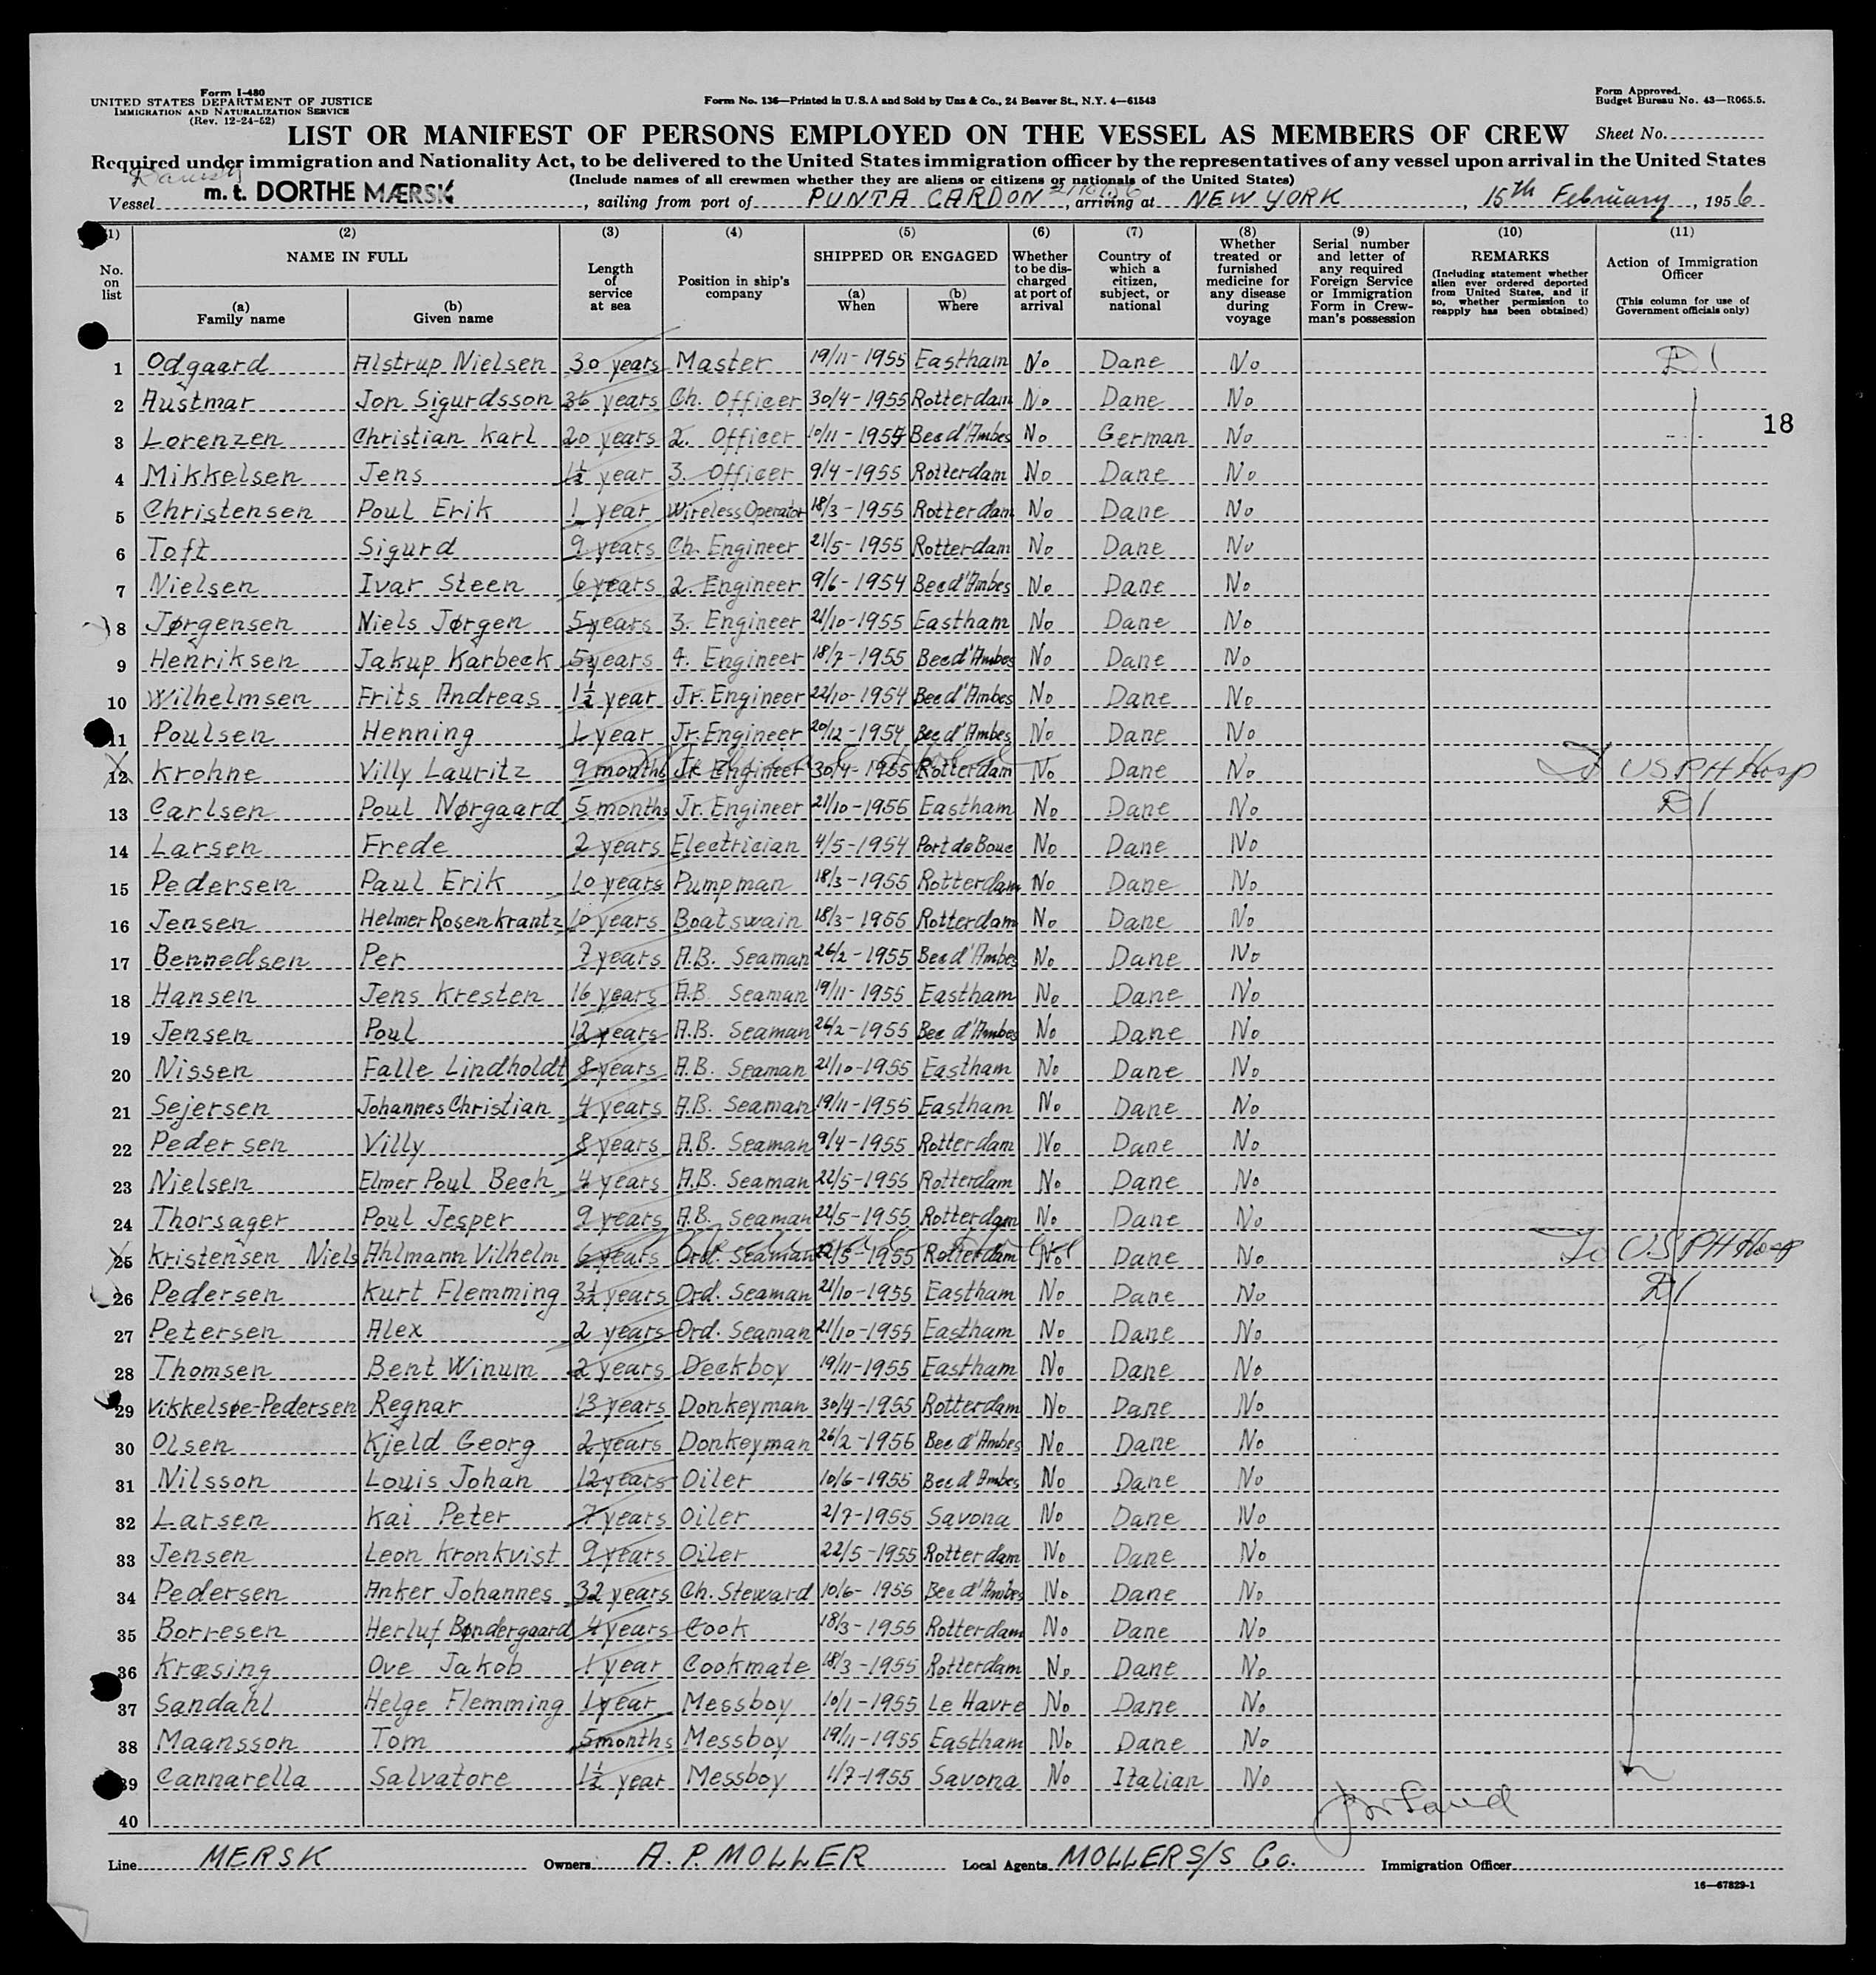 Form I-480
UNITED STATES DEPARTMENT OF JUSTICE
IMMIGRATION AND NATURALIZATION SERVICE
(Rev. 12-24-52)
Form No. 136—Printed in U.S.A and Sold by Unz & Co., 24 Beaver St., N.Y. 4—61543
Form Approved.
Budget Bureau No. 43—R065.5.
LIST OR MANIFEST OF PERSONS EMPLOYED ON THE VESSEL AS MEMBERS OF CREW Sheet No.
Required under immigration and Nationality Act, to be delivered to the United States immigration officer by the representatives of any vessel upon arrival in the United States
(Include names of all crewmen whether they are aliens or citizens or nationals of the United States)
Danish
Vessel m. t. DORTHE MÆRSK, sailing from port of PUNTA CARDON, arriving at NEW YORK, 15th February, 1956
(1) No. on list
(2) NAME IN FULL
(a) Family name
(b) Given name
(3) Length of service at sea
(4) Position in ship's company
(5) SHIPPED OR ENGAGED
(a) When
(b) Where
(6) Whether to be discharged at port of arrival
(7) Country of which a citizen, subject, or national
(8) Whether treated or furnished medicine for any disease during voyage
(9) Serial number and letter of any required Foreign Service or Immigration Form in Crewman's possession
(10) REMARKS
(Including statement whether alien ever ordered deported from United States, and if so, whether permission to reapply has been obtained)
(11) Action of Immigration Officer
(This column for use of Government officials only)
1 Odgaard Alstrup Nielsen 30 years Master 19/11-1955 Eastham No Dane No D1
2 Austmar Jon Sigurdsson 36 years Ch. Officer 30/4-1955 Rotterdam No Dane No
18
3 Lorenzen Christian Karl 20 years 2. Officer 10/11-1955 Bec d'Ambes No German No
4 Mikkelsen Jens 1½ year 3. Officer 9/4-1955 Rotterdam No Dane No
5 Christensen Poul Erik 1 year Wireless Operator 18/3-1955 Rotterdam No Dane No
6 Toft Sigurd 9 years Ch. Engineer 21/5-1955 Rotterdam No Dane No
7 Nielsen Ivar Steen 6 years 2. Engineer 9/6-1954 Bec d'Ambes No Dane No
8 Jørgensen Niels Jørgen 5 years 3. Engineer 21/10-1955 Eastham No Dane No
9 Henriksen Jakup Karbeck 5½ years 4. Engineer 18/7-1955 Bec d'Ambes No Dane No
10 Wilhelmsen Frits Andreas 1½ year Jr. Engineer 22/10-1954 Bec d'Ambes No Dane No
11 Poulsen Henning 1 year Jr. Engineer 20/12-1954 Bec d'Ambes No Dane No
12 Krohne Villy Lauritz 9 months Jr. Engineer 30/4-1955 Rotterdam No Dane No To USPH Hosp
13 Carlsen Poul Nørgaard 5 months Jr. Engineer 21/10-1955 Eastham No Dane No D1
14 Larsen Frede 2 years Electrician 4/5-1954 Port de Bouc No Dane No
15 Pedersen Paul Erik 10 years Pumpman 18/3-1955 Rotterdam No Dane No
16 Jensen Helmer Rosenkrantz 10 years Boatswain 18/3-1955 Rotterdam No Dane No
17 Bennedsen Per 7 years A.B. Seaman 26/2-1955 Bec d'Ambes No Dane No
18 Hansen Jens Kresten 16 years A.B. Seaman 19/11-1955 Eastham No Dane No
19 Jensen Poul 12 years A.B. Seaman 26/2-1955 Bec d'Ambes No Dane No
20 Nissen Falle Lindholdt 8 years A.B. Seaman 21/10-1955 Eastham No Dane No
21 Sejersen Johannes Christian 4 years A.B. Seaman 19/11-1955 Eastham No Dane No
22 Pedersen Villy 8 years A.B. Seaman 9/4-1955 Rotterdam No Dane No
23 Nielsen Elmer Poul Bech 4 years A.B. Seaman 22/5-1955 Rotterdam No Dane No
24 Thorsager Poul Jesper 9 years A.B. Seaman 22/5-1955 Rotterdam No Dane No
25 Kristensen Niels Ahlmann Vilhelm 6 years Ord. Seaman 22/5-1955 Rotterdam No Dane No To USPH Hosp
26 Pedersen Kurt Flemming 3½ years Ord. Seaman 21/10-1955 Eastham No Dane No D1
27 Petersen Alex 2 years Ord. Seaman 21/10-1955 Eastham No Dane No
28 Thomsen Bent Winum 2 years Deckboy 19/11-1955 Eastham No Dane No
29 Vikkelsøe-Pedersen Regnar 13 years Donkeyman 30/4-1955 Rotterdam No Dane No
30 Olsen Kjeld Georg 2 years Donkeyman 26/2-1955 Bec d'Ambes No Dane No
31 Nilsson Louis Johan 12 years Oiler 10/6-1955 Bec d'Ambes No Dane No
32 Larsen Kai Peter 7 years Oiler 2/7-1955 Savona No Dane No
33 Jensen Leon Kronkvist 9 years Oiler 22/5-1955 Rotterdam No Dane No
34 Pedersen Anker Johannes 32 years Ch. Steward 10/6-1955 Bec d'Ambes No Dane No
35 Borresen Herluf Bøndergaard 4 years Cook 18/3-1955 Rotterdam No Dane No
36 Kræsing Ove Jakob 1 year Cookmate 18/3-1955 Rotterdam No Dane No
37 Sandahl Helge Flemming 1 year Messboy 10/1-1955 Le Havre No Dane No
38 Maansson Tom 5 months Messboy 19/11-1955 Eastham No Dane No
39 Cannarella Salvatore 1½ year Messboy 1/7-1955 Savona No Italian No
40
Line MERSK Owners A. P. MOLLER Local Agents MOLLER S/S Co. Immigration Officer
16—67829-1